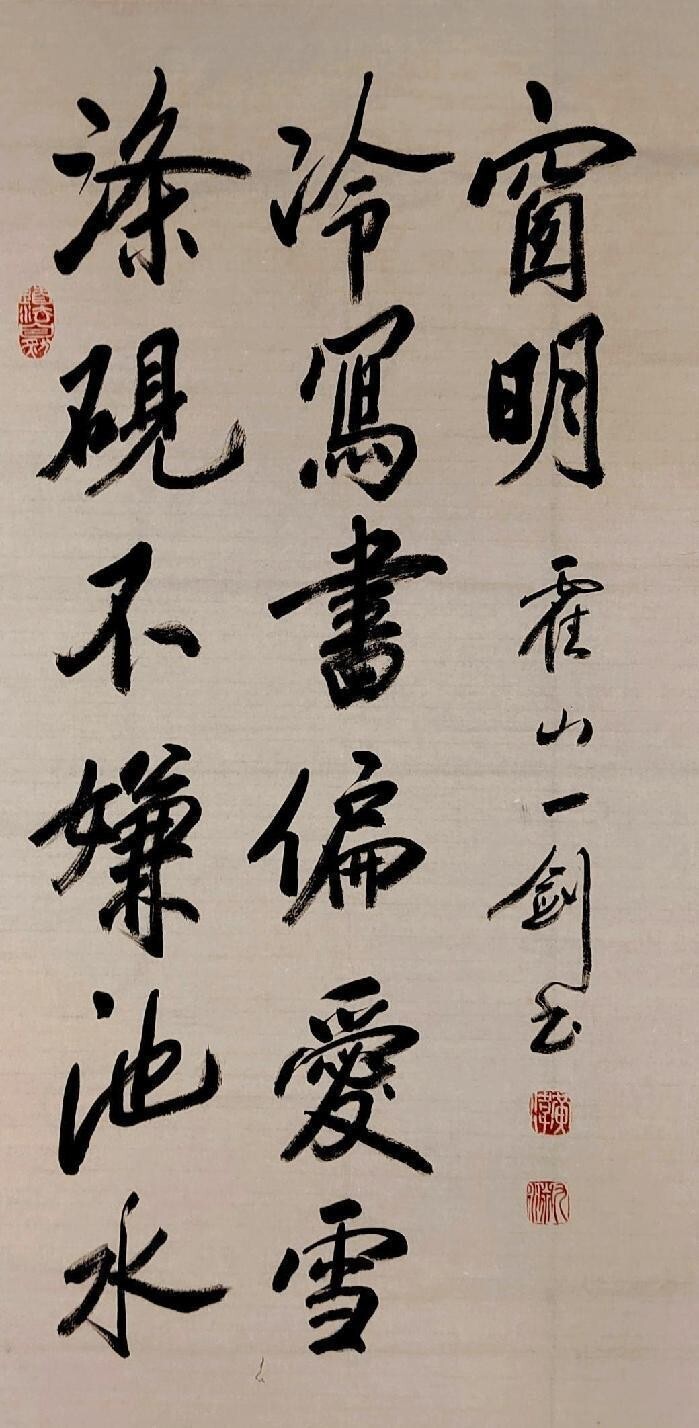 滌硯不嫌池水
冷寫書偏愛雪
窗明
霍山一劍书